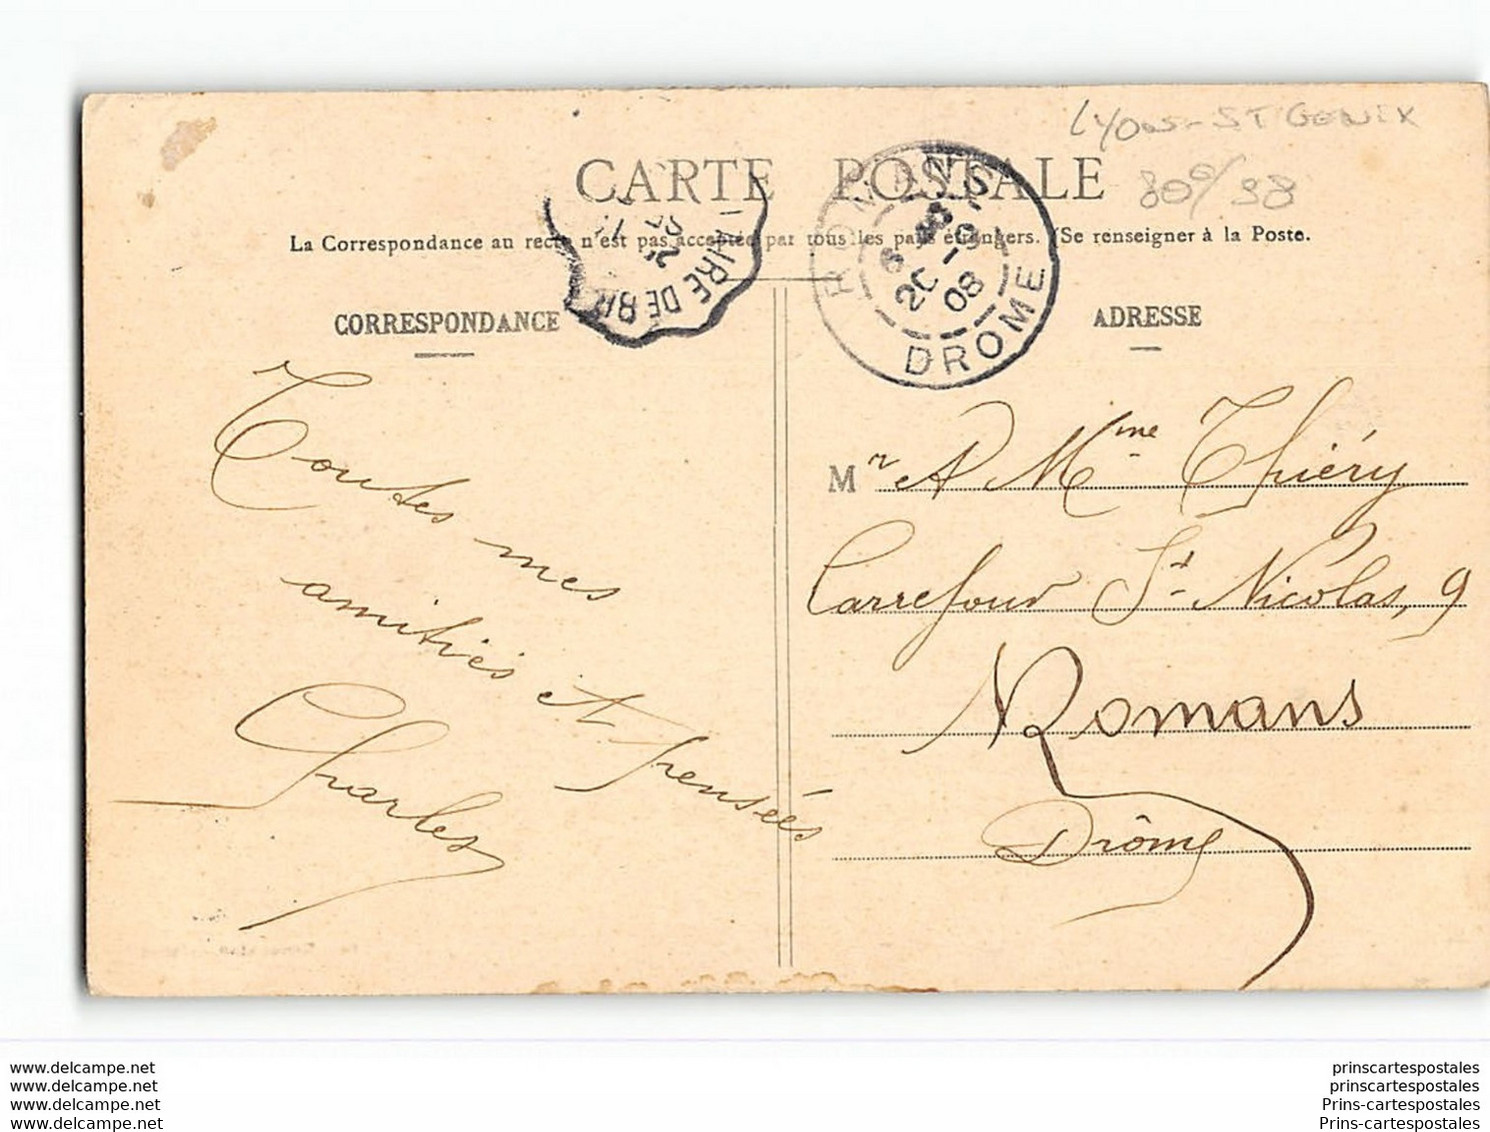 Lyon - ST GENIX
80°/98
CARTE POSTALE
La Correspondance au recto n'est pas acceptée par tous les pays étrangers. (Se renseigner à la Poste.
AIRE DE BR
ROMANS
6
20 -9
08
DROME
CORRESPONDANCE
ADRESSE
Toutes mes
amitiés et pensées
Charles
Mr et Mme Thiéry
Carrefour St Nicolas, 9
Romans
Drôme
www.delcampe.net
www.delcampe.net
www.delcampe.net
www.delcampe.net
prinscartespostales
prinscartespostales
Prins-cartespostales
Prins-cartespostales